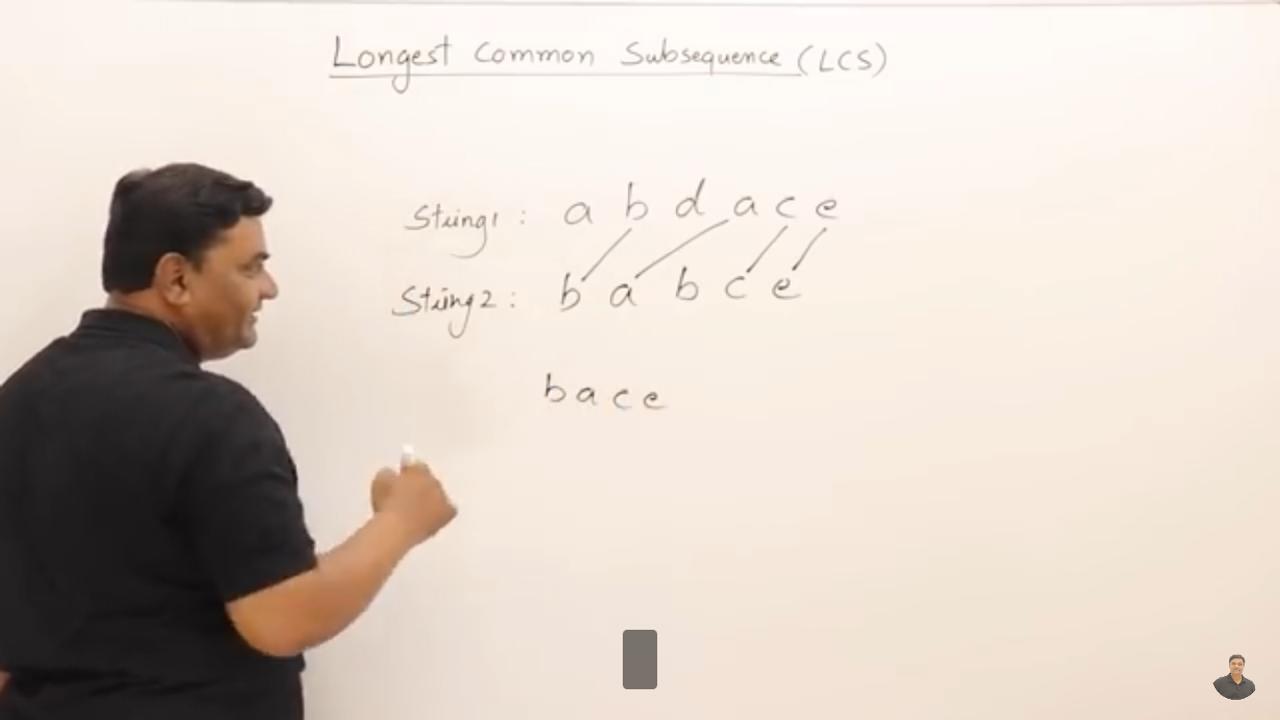 Longest Common Subsequence (LCS)
String1 : a b d a c e
String2 : b a b c e
b a c e